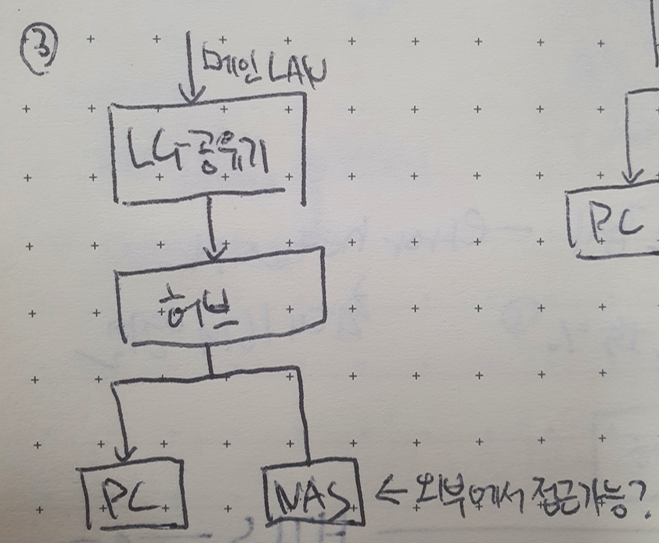 ③
메인 LAN
LG공유기
허브
PC
PC
NAS ← 외부에서 접근가능?